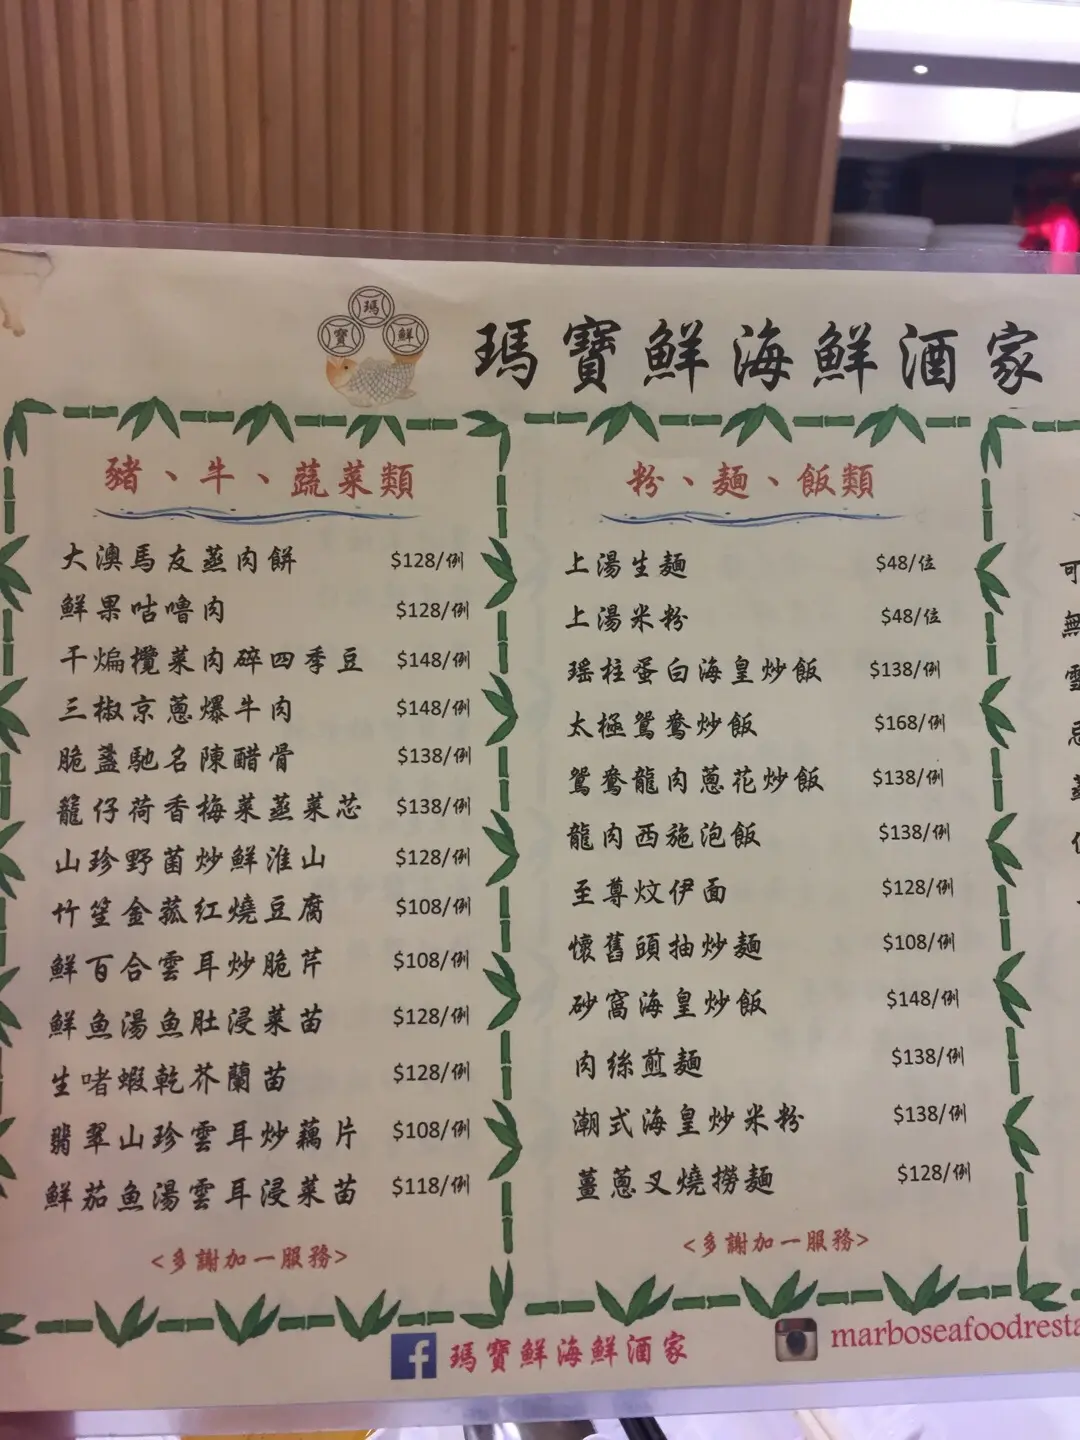 瑪
寶 鮮
瑪寶鮮海鮮酒家
豬、牛、蔬菜類
大澳馬友蒸肉餅 $128/例
鮮果咕嚕肉 $128/例
干煸欖菜肉碎四季豆 $148/例
三椒京蔥爆牛肉 $148/例
脆盞馳名陳醋骨 $138/例
籠仔荷香梅菜蒸菜芯 $138/例
山珍野菌炒鮮淮山 $128/例
竹笙金菰紅燒豆腐 $108/例
鮮百合雲耳炒脆芹 $108/例
鮮魚湯魚肚浸菜苗 $128/例
生啫蝦乾芥蘭苗 $128/例
翡翠山珍雲耳炒藕片 $108/例
鮮茄魚湯雲耳浸菜苗 $118/例
<多謝加一服務>
粉、麵、飯類
上湯生麵 $48/位
上湯米粉 $48/位
瑶柱蛋白海皇炒飯 $138/例
太極鴛鴦炒飯 $168/例
鴛鴦龍肉蔥花炒飯 $138/例
龍肉西施泡飯 $138/例
至尊炆伊面 $128/例
懷舊頭抽炒麵 $108/例
砂窩海皇炒飯 $148/例
肉絲煎麵 $138/例
潮式海皇炒米粉 $138/例
薑蔥叉燒撈麵 $128/例
<多謝加一服務>
瑪寶鮮海鮮酒家
marboseafoodresta